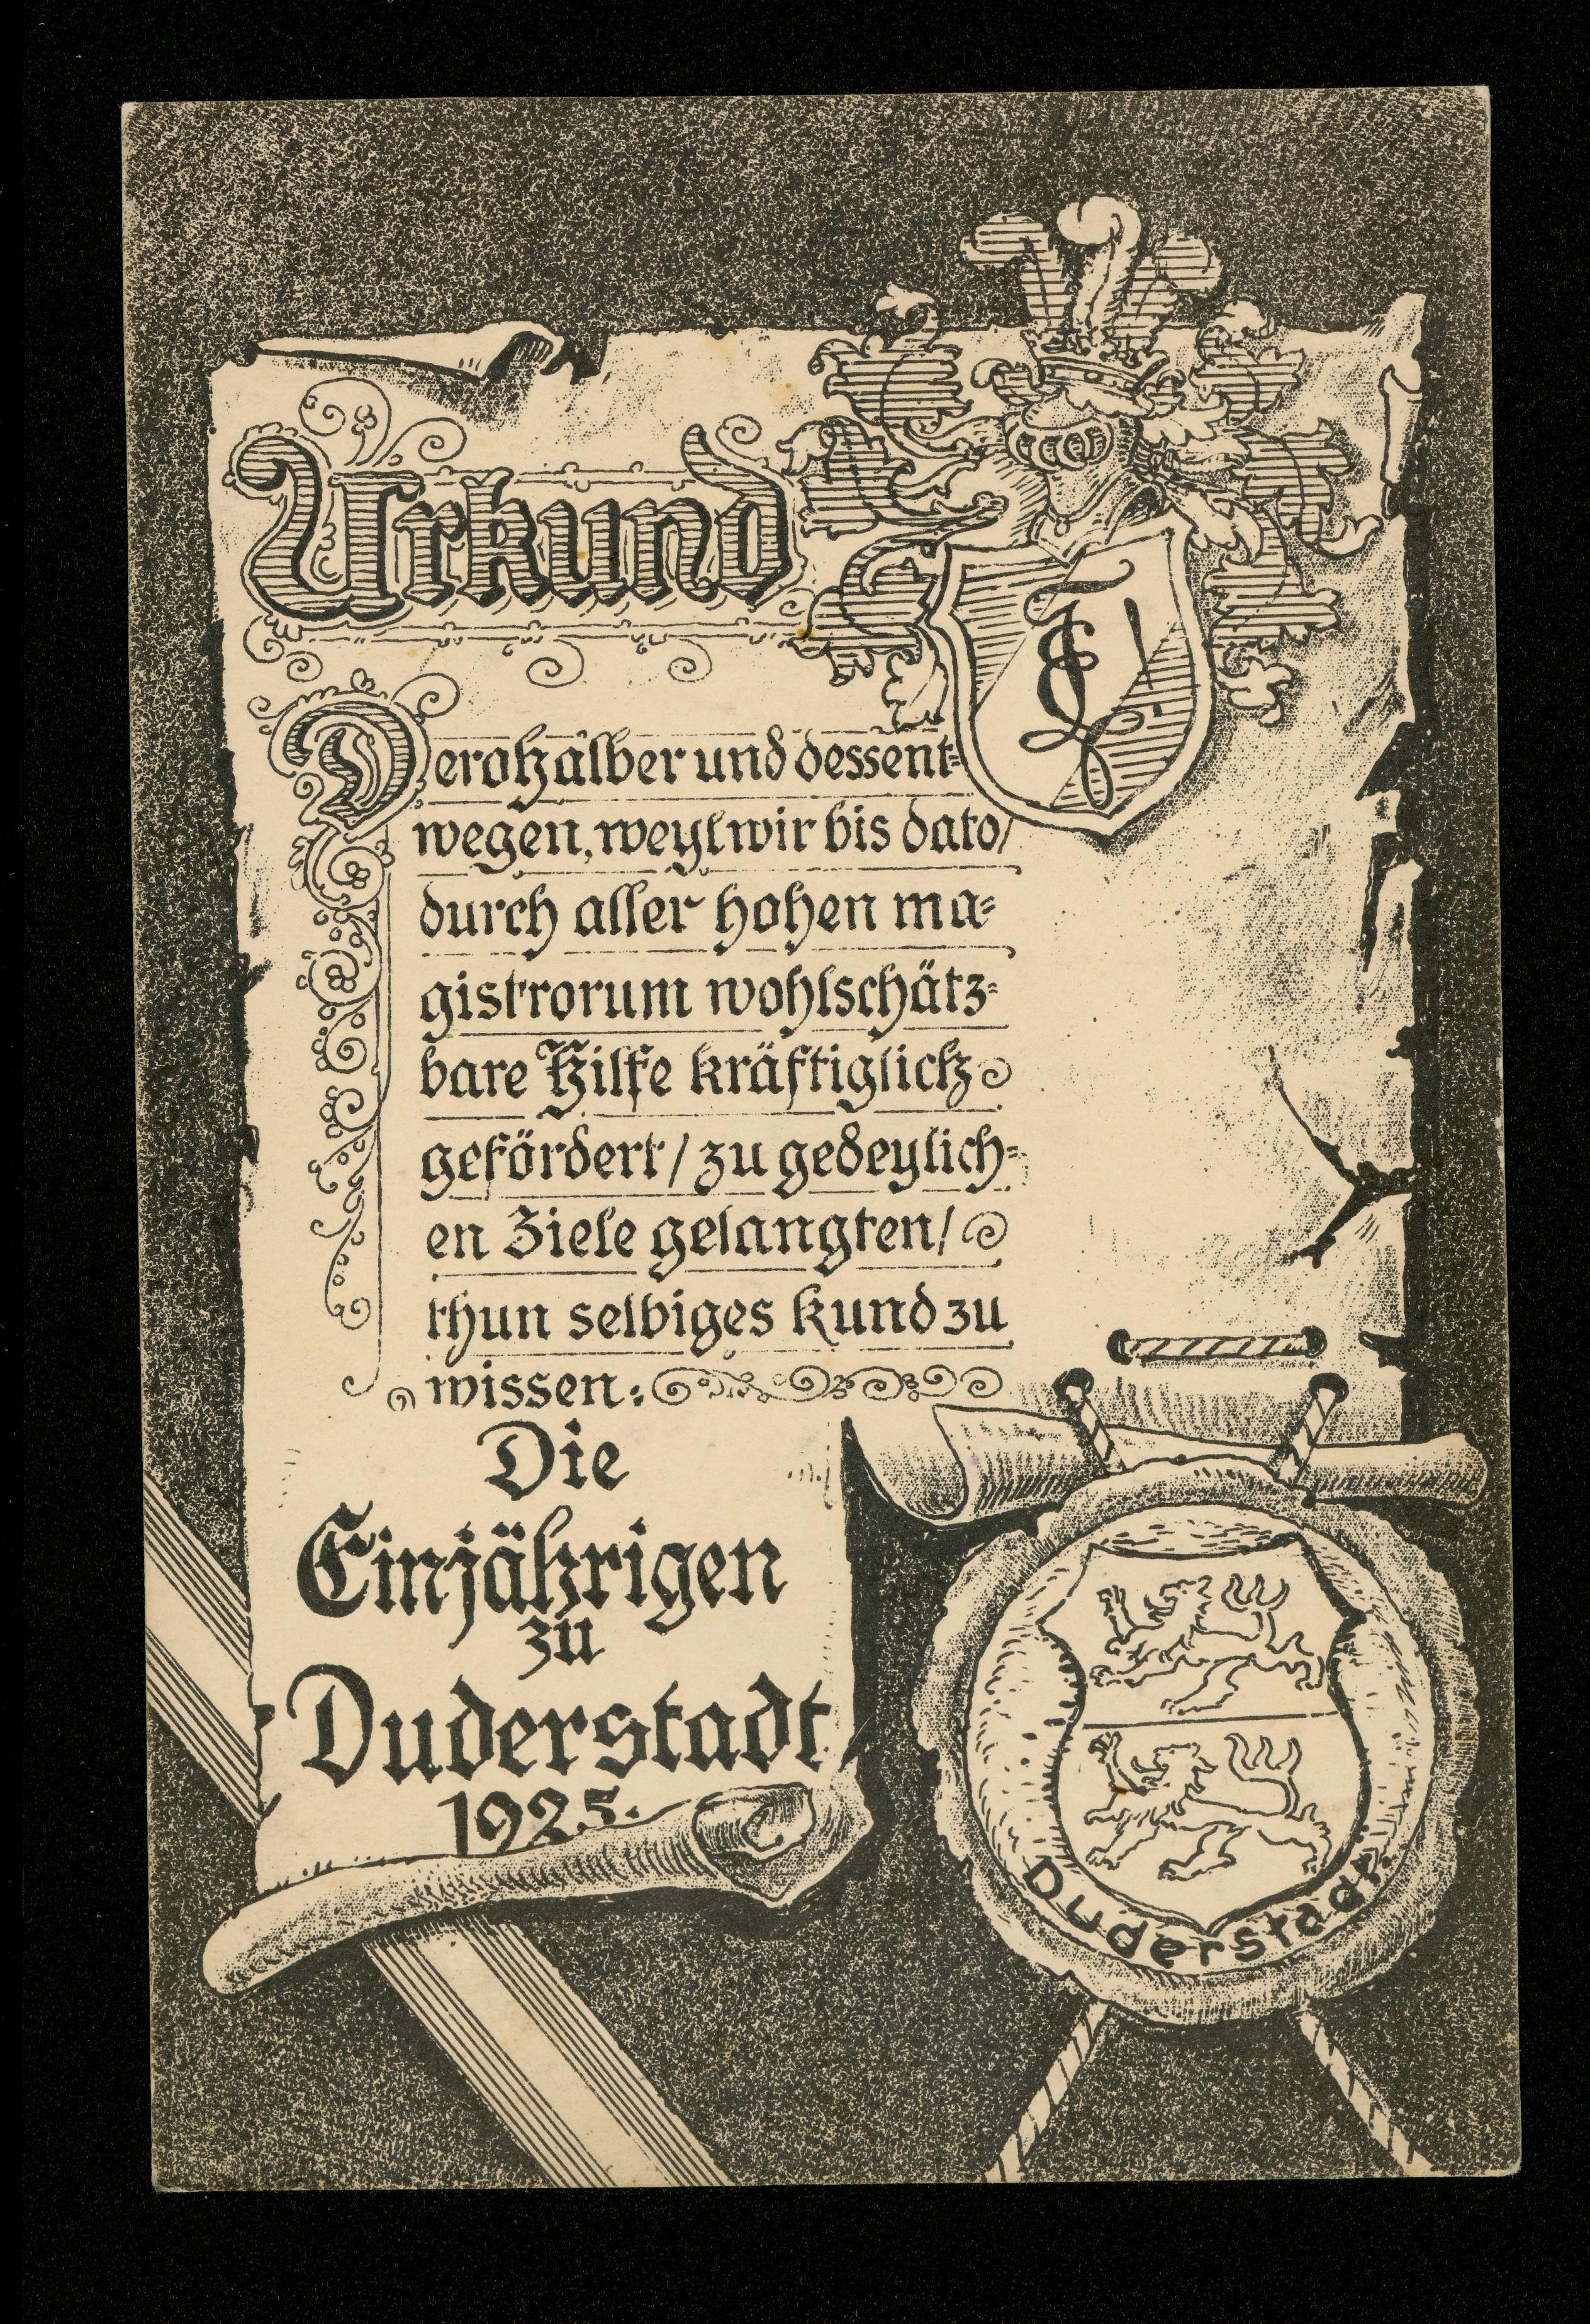 Urkund
Derohalber und dessent=
wegen, weyl wir bis dato/
durch aller hohen ma=
gistrorum wohlschätz=
bare Hilfe kräftiglich
gefördert/ zu gedeylich=
en Ziele gelangten/
thun selbiges kund zu
wissen:
Die
Einjährigen
zu
Duderstadt
1925.
Duderstadt